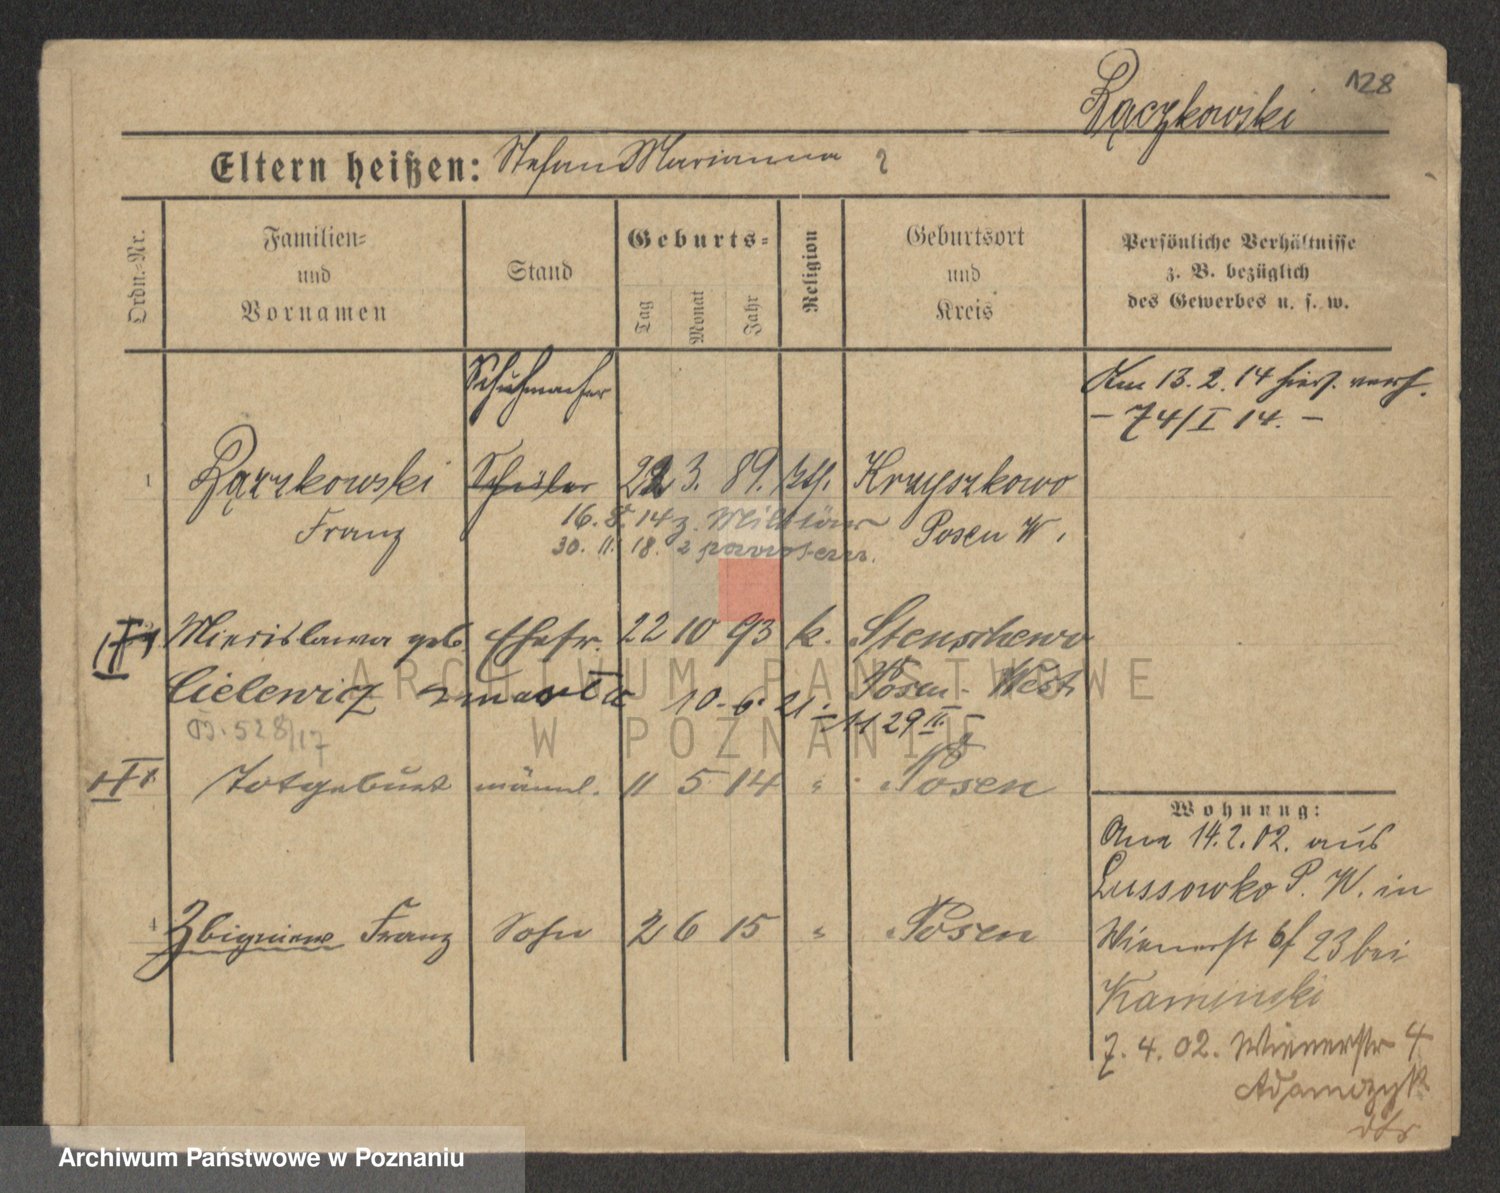 128
Rączkowski
Eltern heißen: Stefan Marianna
Ordn.-Nr.
Familien-
und
Vornamen
Stand
Geburts-
Tag
Monat
Jahr
Religion
Geburtsort
und
Kreis
Persönliche Verhältnisse
z. B. bezüglich
des Gewerbes u. s. w.
Schuhmacher
Am 13. 2. 14 hier verh.
- 74/I 14. -
1 Rączkowski Schüler 22 3. 89. kth. Krzyszkowo
Franz 16. 8. 14 z. Militär Posen W.
30. 11. 18.
Miecislawa geb. Ehefr. 22 10 93 k. Stenschewo
Cielewicz zmarła 10. 6. 21 Posen-West
B. 528/17 29 II
Totgeburt männl. 11 5 14 " Posen
Wohnung:
Am 14. 2. 02. aus
Lussowko P. W. in
4 Zbigniew Franz Sohn 2 6 15 " Posen
Wienerstr 6/23 bei
Kaminski
7. 4. 02. Wienerstr 4
Adamczyk
ARCHIWUM PAŃSTWOWE
W POZNANIU
Archiwum Państwowe w Poznaniu